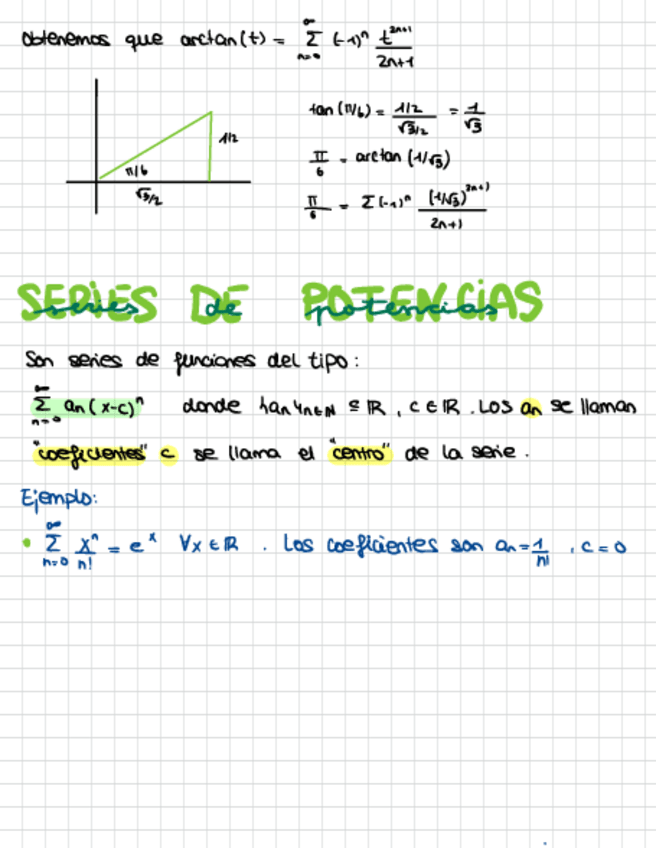 obtenemos que arctan(t) = ∞ Σ n=0 (-1)ⁿ t²ⁿ⁺¹ / 2n+1
1/2
π/6
√3/2
tan(π/6) = 1/2 / √3/2 = 1/√3
π/6 = arctan(1/√3)
π/6 = Σ(-1)ⁿ (1/√3)²ⁿ⁺¹ / 2n+1
SERIES DE POTENCIAS
series de potencias
Son series de funciones del tipo:
∞ Σ n=0 an(x-c)ⁿ donde {an}n∈N ⊆ ℝ, c ∈ ℝ. Los an se llaman
"coeficientes" c se llama el "centro" de la serie.
Ejemplo:
• ∞ Σ n=0 xⁿ/n! = eˣ ∀x ∈ ℝ. Los coeficientes son an = 1/n!, c = 0